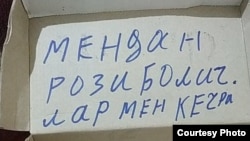 МЕНДАН
РОЗИ БОЛИЧ.
ЛАР МЕН КЕЧРА
Courtesy Photo